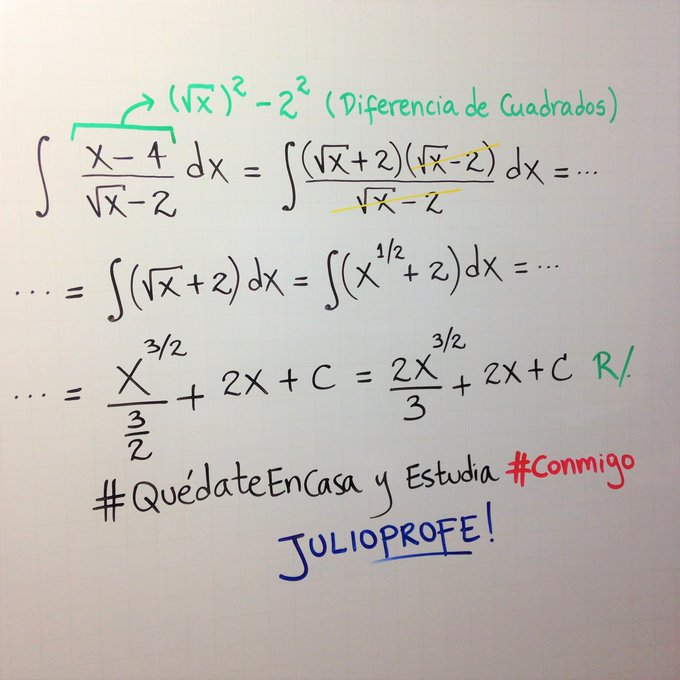 (√x)² − 2² (Diferencia de Cuadrados)
∫ (x − 4)/(√x − 2) dx = ∫ ((√x + 2)(√x − 2))/(√x − 2) dx = ...
... = ∫(√x + 2) dx = ∫(x^(1/2) + 2) dx = ...
... = x^(3/2)/(3/2) + 2x + C = 2x^(3/2)/3 + 2x + C R/.
#QuédateEnCasa y Estudia #Conmigo
JULIOPROFE!